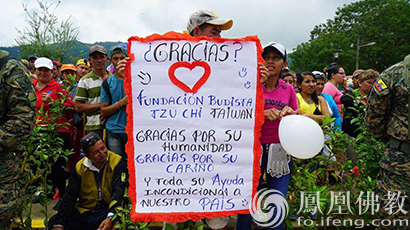 ¿GRACIAS?
FUNDACIÓN BUDISTA
TZU CHÍ TAIWAN
GRACIAS POR SU
HUMANIDAD
GRACIAS POR SU
CARIÑO
Y TODA SU AYUDA
INCONDICIONAL A
NUESTRO PAÍS
凤凰佛教
fo.ifeng.com